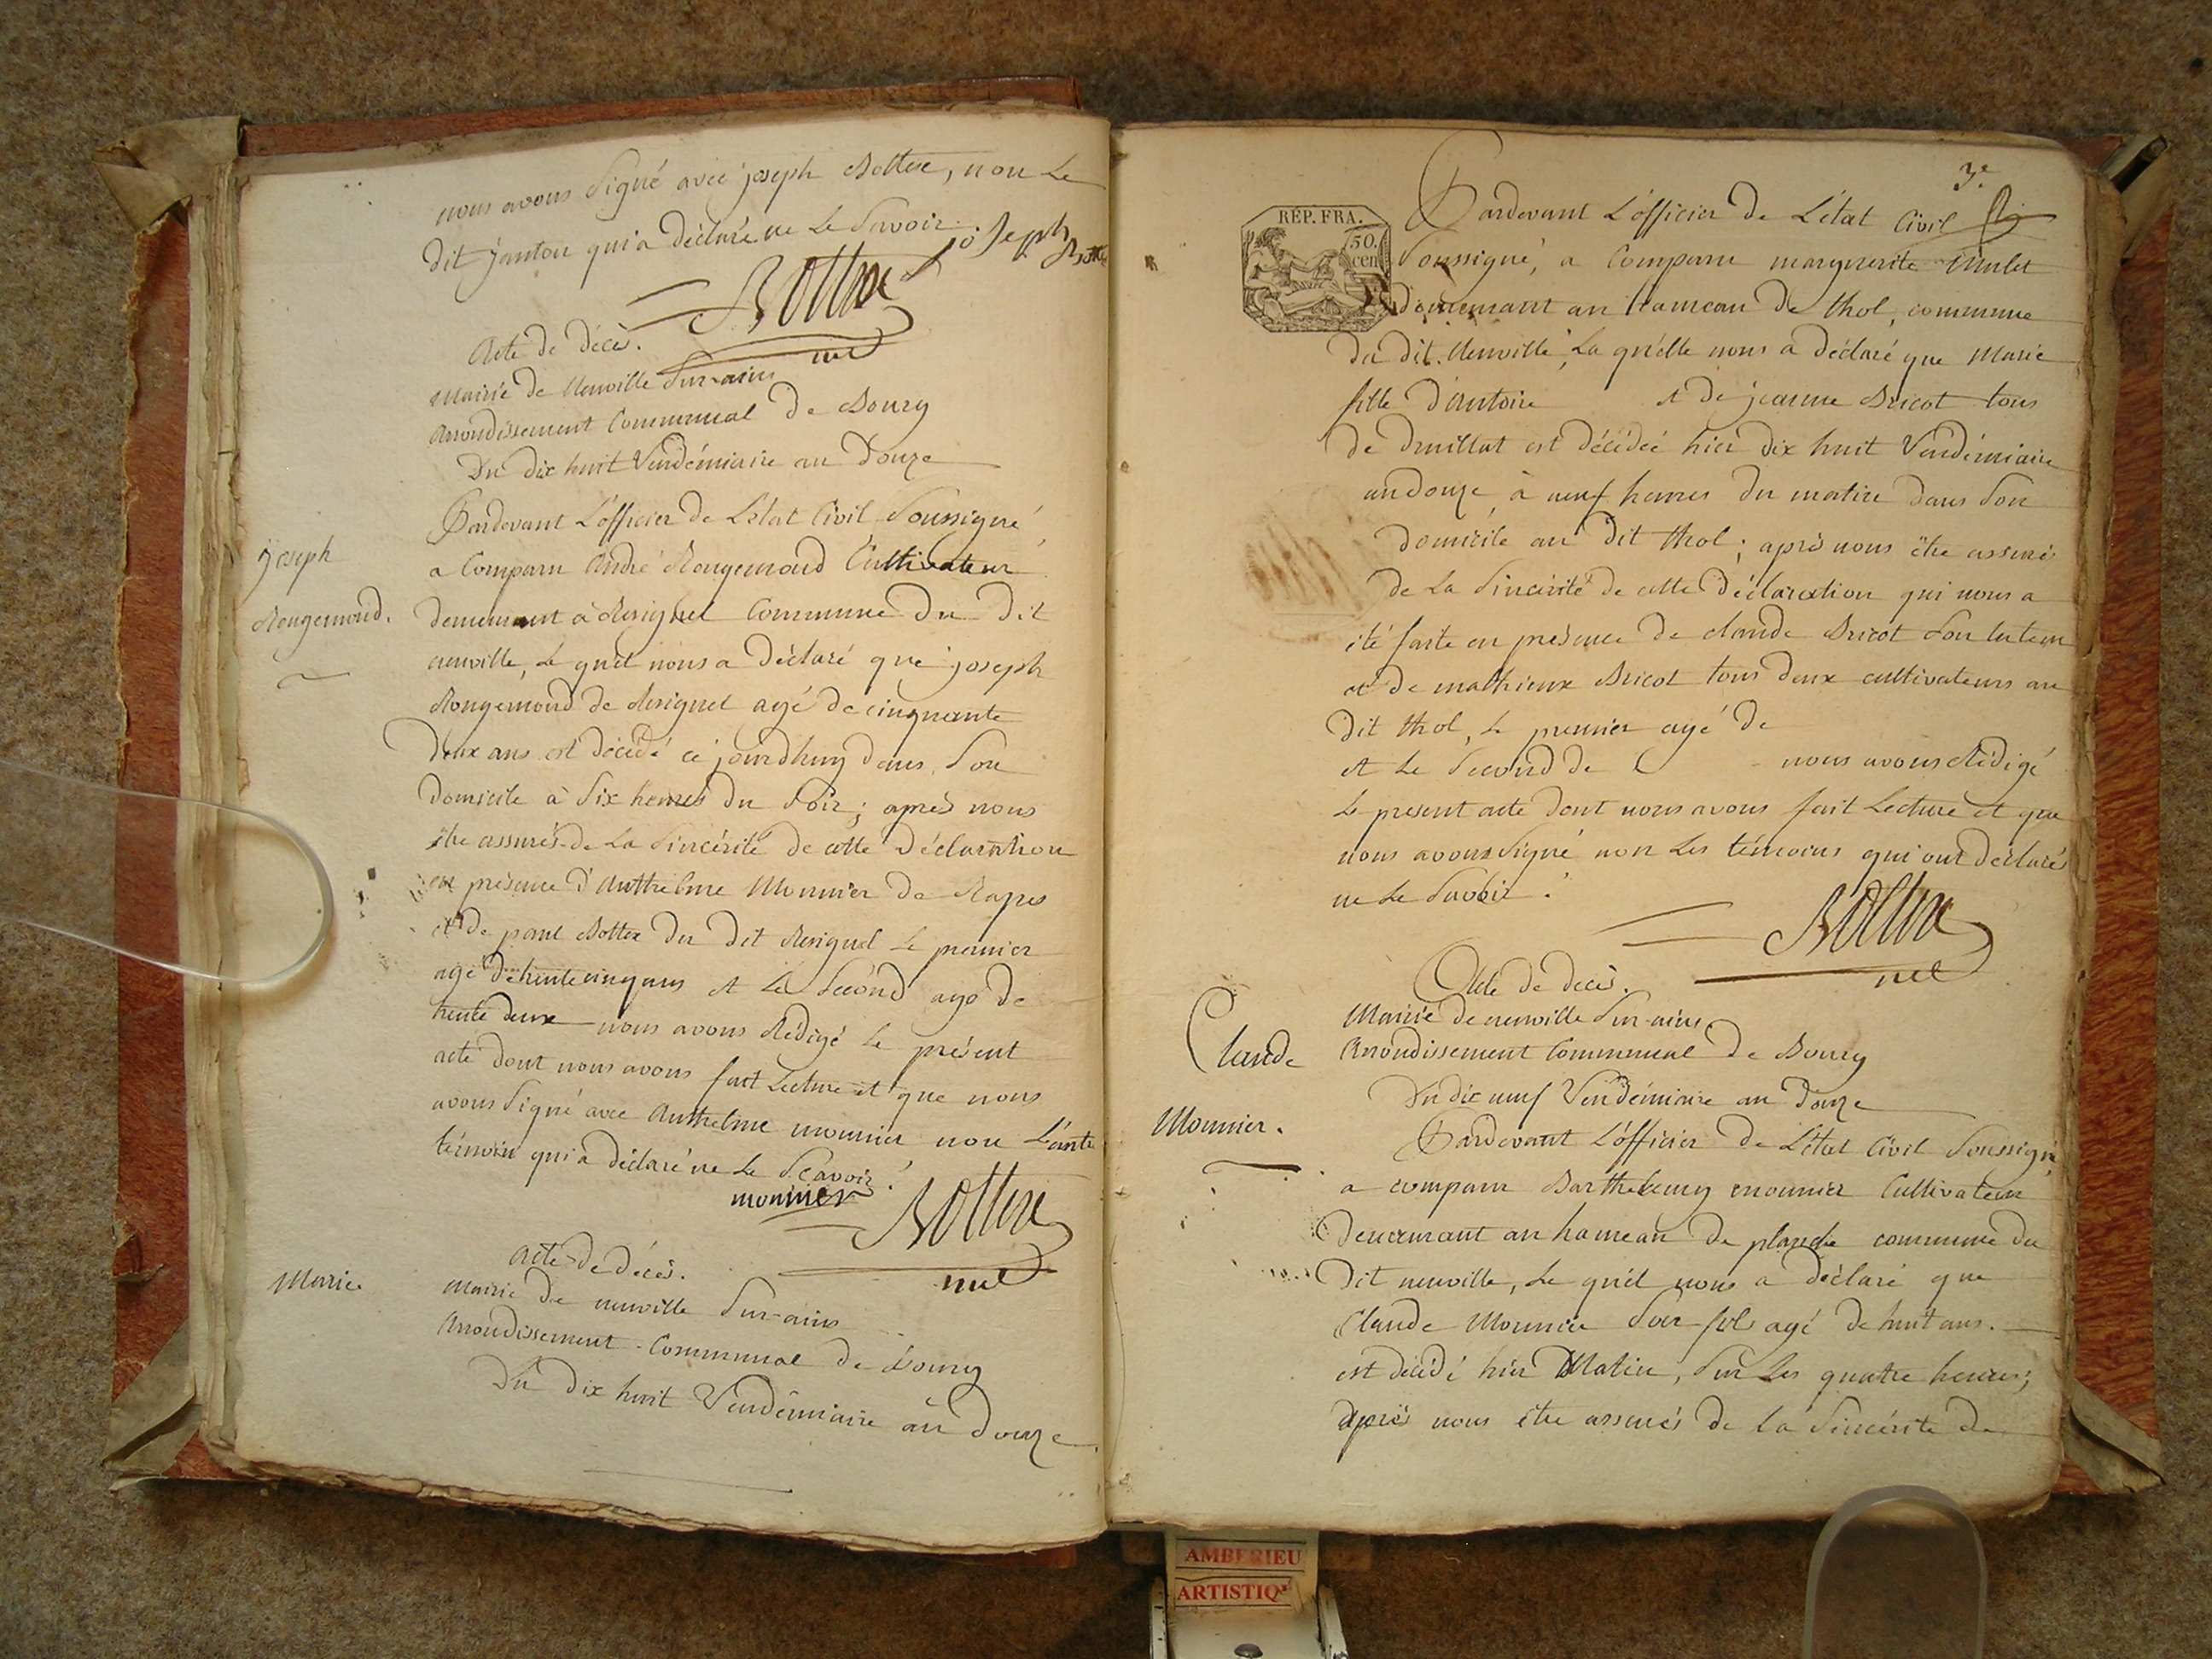 nous avons Signé avec joseph Bottex, non Le
dit Janton qui a déclaré ne Le Savoir. joseph Bottex
Bottex
me
Acte de décès.
Mairie de Neuville Sur-ains
Arrondissement Communal de Bourg
Du dix huit Vendémiaire an Douze
Pardevant L'officier de L'état Civil Soussigné
Joseph
Rougemond.
a Comparu André Rougemond Cultivateur
demeurant à Resignel Commune Du Dit
neuville, Le quel nous a Déclaré que joseph
Rougemond de Resignel agé de cinquante
Deux ans est décédé ce jourdhuy dans Son
Domicile à Six heures du Soir; après nous
être assurés de La Sincérité de cette Déclaration
en présence d'Anthelme Monnier de Rapes
et de paul Bottex du dit Resignel Le premier
agé de trente cinq ans et Le Second agé de
trente deux nous avons Rédigé Le présent
acte dont nous avons fait Lecture et que nous
avons Signé avec Anthelme monnier non L'autre
témoin qui a déclaré ne Le Scavoir.
monnier
Bottex
me
Marie
Acte de décès.
Mairie de neuville Sur-ains
Arrondissement Communal de Bourg
Du dix huit Vendémiaire an Douze
3e
REP. FRA.
50.
cen
Pardevant L'officier de L'état Civil
Soussigné, a Comparu marguerite Mulet
demeurant au hameau de thol, commune
du dit Neuville, La quelle nous a déclaré que Marie
fille d'Antoine et de jeanne Bricot tous
de druillat est décédée hier dix huit Vendémiaire
an douze, à neuf heures du matin dans Son
domicile au dit thol; après nous être assurés
de La Sincérité de cette déclaration qui nous a
été faite en présence de claude Bricot Son tuteur
et de mathieux Bricot tous deux cultivateurs au
dit thol, Le premier agé de
et Le Second de nous avons Rédigé
Le present acte dont nous avons fait Lecture et que
nous avons Signé non Les témoins qui ont déclarés
ne Le Savoir.
Bottex
me
Acte de decès.
Mairie de neuville Sur-ains
Claude
Monnier.
Arrondissement Communal de Bourg
Du dix neuf Vendémiaire an Douze
Pardevant L'officier de L'état Civil Soussigné
a comparu Barthelemy monnier Cultivateur
Demeurant au hameau de planche commune du
Dit neuville, Le quel nous a déclaré que
Claude Monnier Son fils agé de huit ans.
est décédé hier Matin, Sur Les quatre heures;
après nous être assurés de la Sincérité de
AMBERIEU
ARTISTIQ